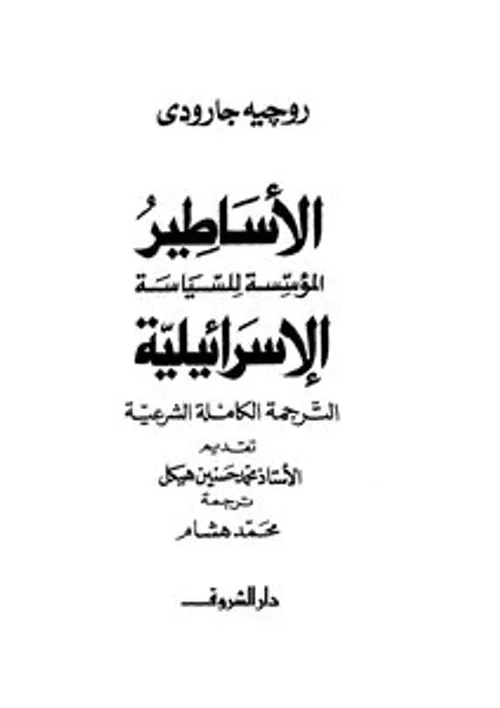 روچيه جارودى
الأسَاطِيرُ
المؤسِّسة للسِّيَاسَة
الإسرَائيليّة
التَّرجمة الكاملة الشرعيّة
تقديم
الأستاذ محمد حسنين هيكل
ترجمة
محمّد هشام
دار الشروق